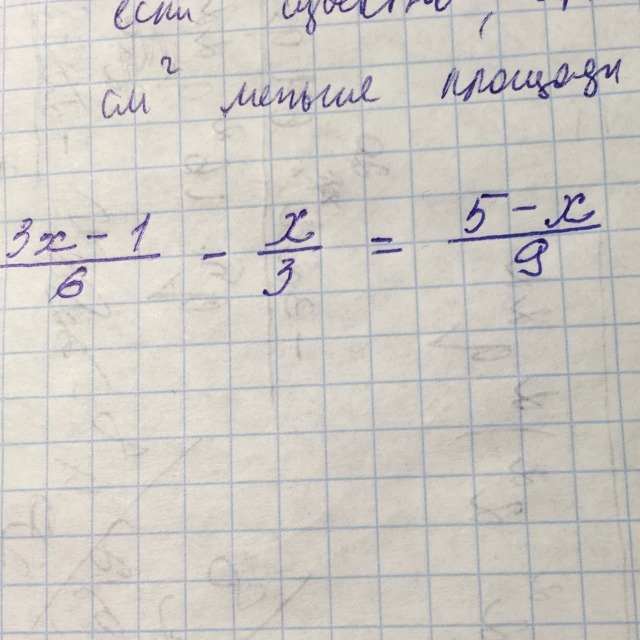 если
см² меньше площади
3x - 1 / 6 - x / 3 = 5 - x / 9